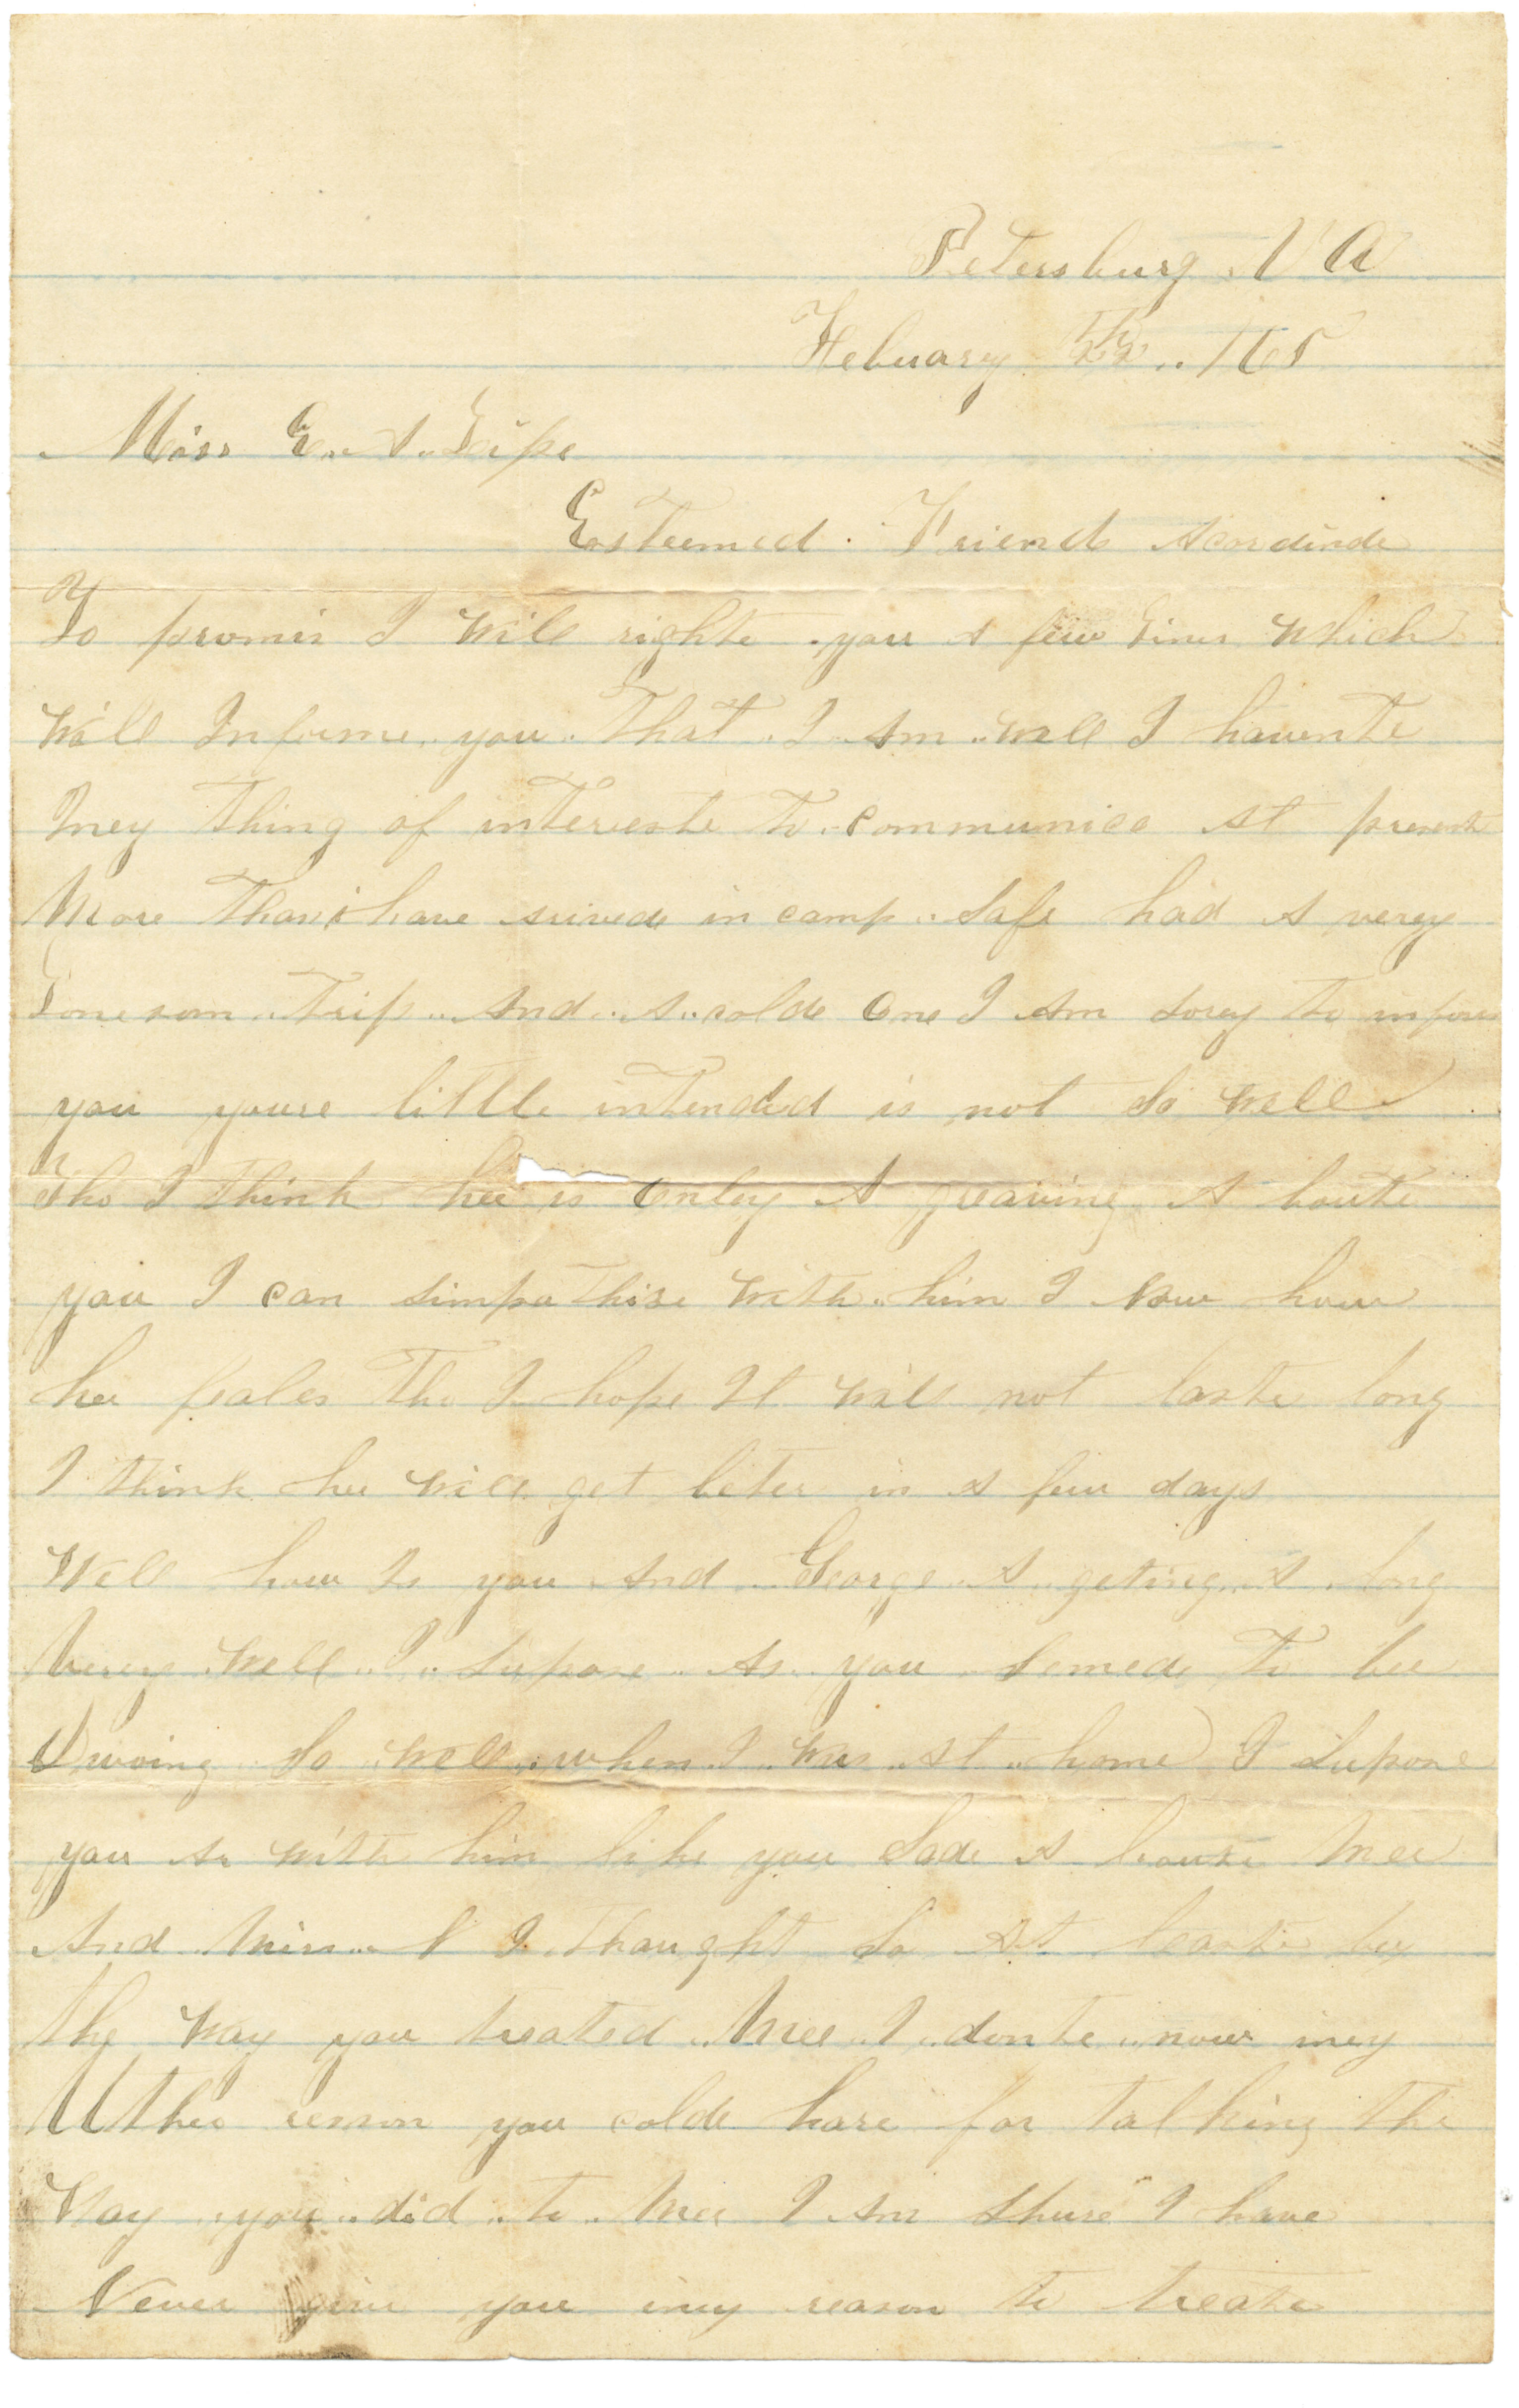 Petersburg VA
Febuary 22th .. /65
Miss E.. A.. Leipe
Esteemed Friende Acordinde
To promis I will righte you A few lines which
will Informe.. you.. That.. I.. Am.. well I havente
Iney Thing of intereste To communica At presente
More Than i have arivede in camp.. Safe had A verey
Lonesom.. Trip.. And.. A.. colde One I Am Sorey To inform
you youre little intended is not So well
Tho I think hee is Onley A greaving A boute
you I can simpathise with.. him I Now how
hee feales Tho I hope It will not laste long
I think hee will get beter in A few days
Well how is you And.. George.. A.. geting.. A long
Verey.. well.. I.. Supose.. As.. you Semede To bee
Dwoing So well.. when.. I.. was.. At.. home I Supose
you Ar with him like you Sade A boute Mee
And Miss.. I thought So At leaste by
the way you treated.. Mee.. I.. donte.. now iney
Uther reson you colde have for talking the
Way.. you.. did.. to.. Mee I Am Shure I have
Never give you iney reason to treate